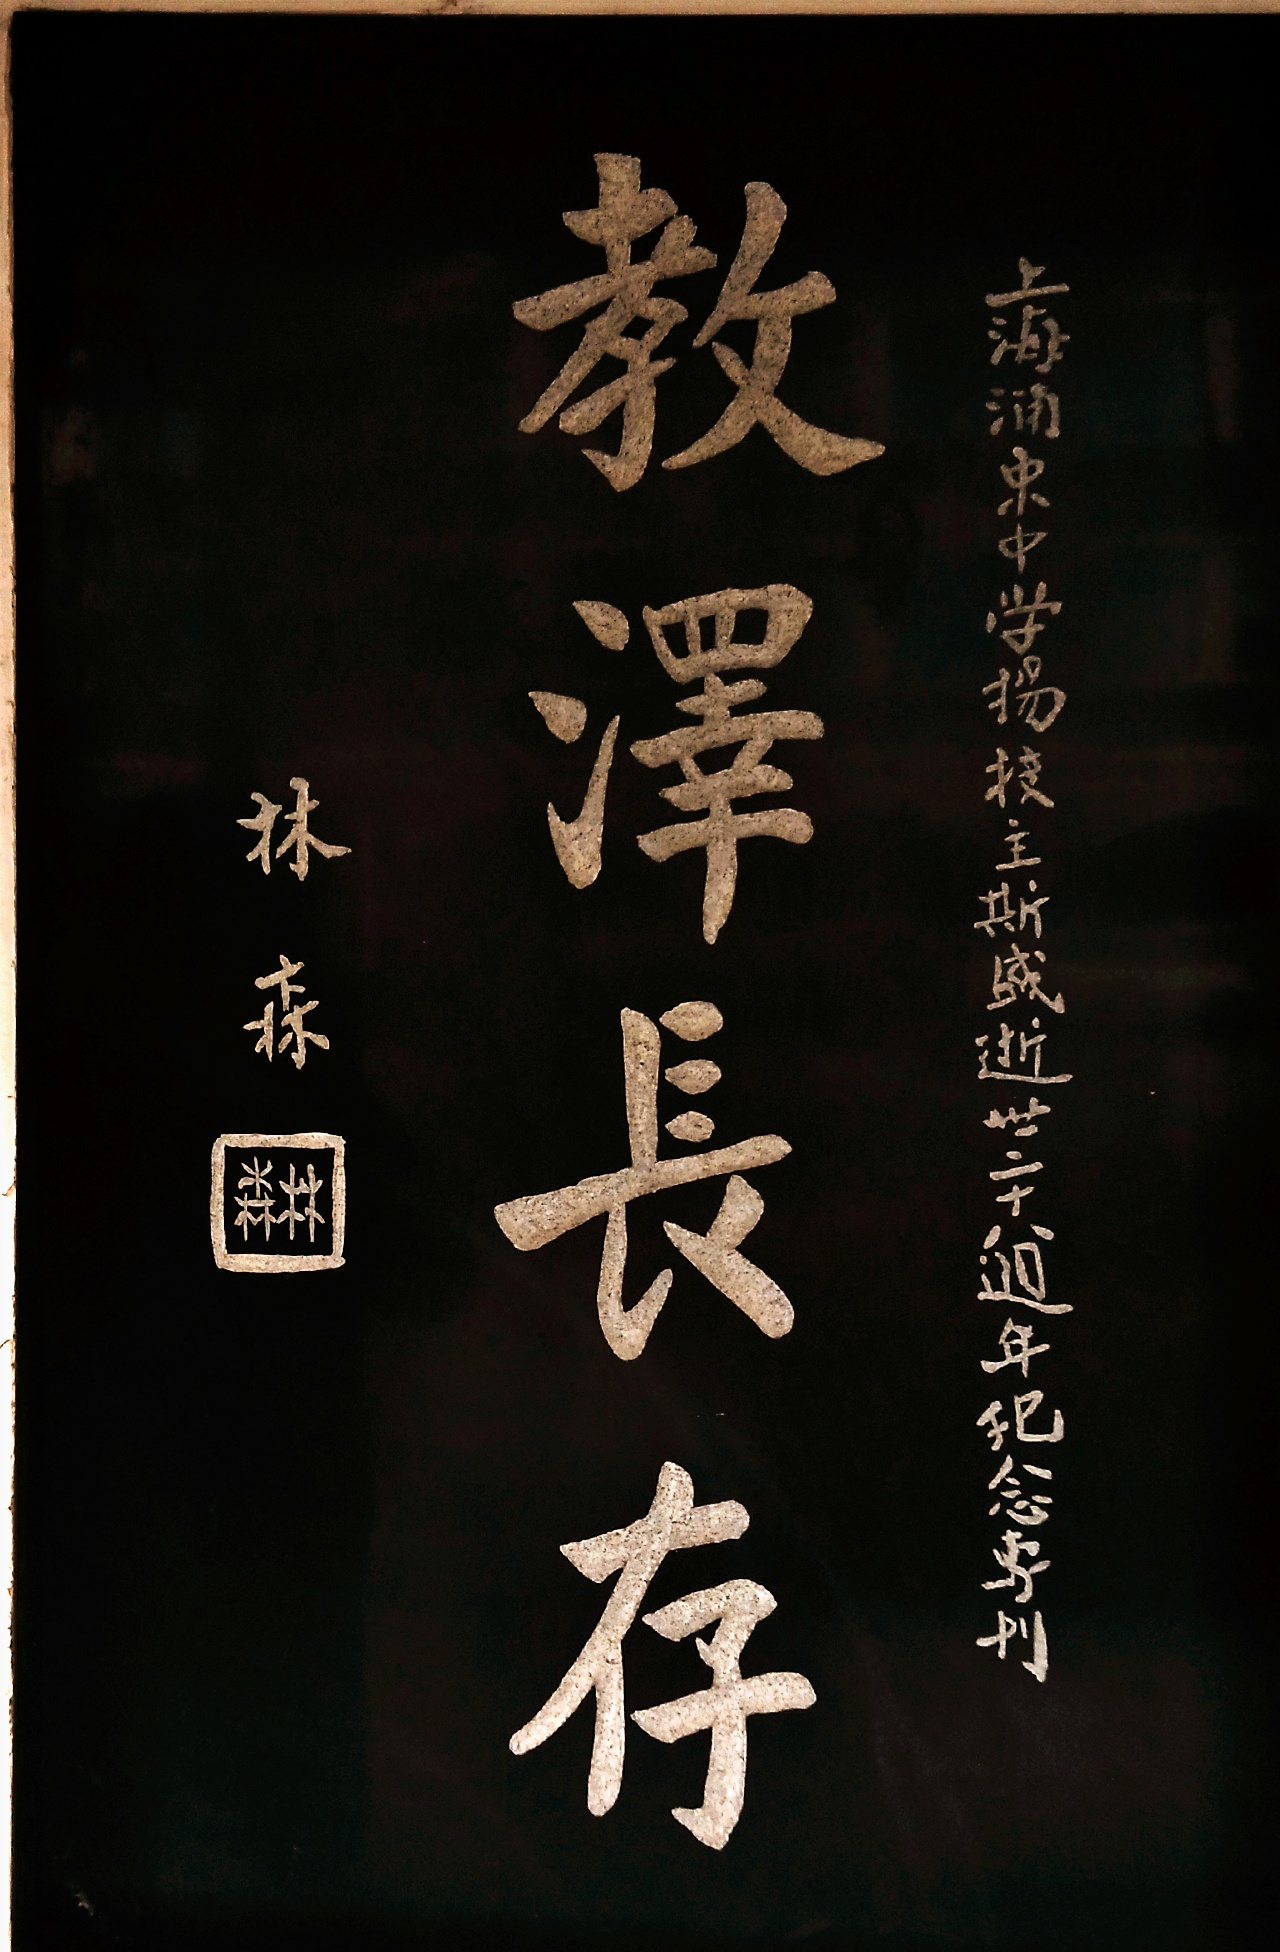 上海浦東中学楊校主斯盛逝世二十八週年紀念專刊
教澤長存
林森
林森